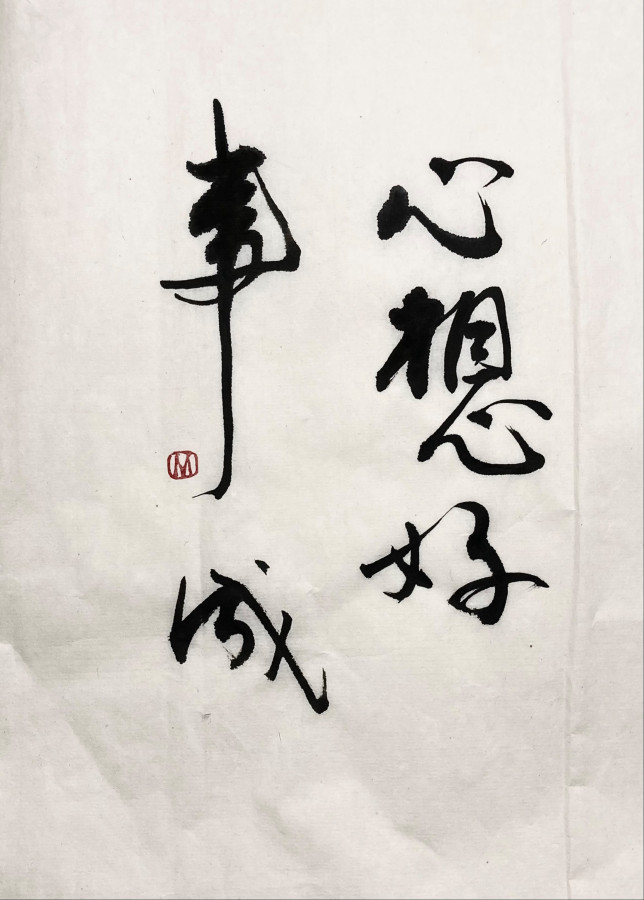 心想好
事成
M